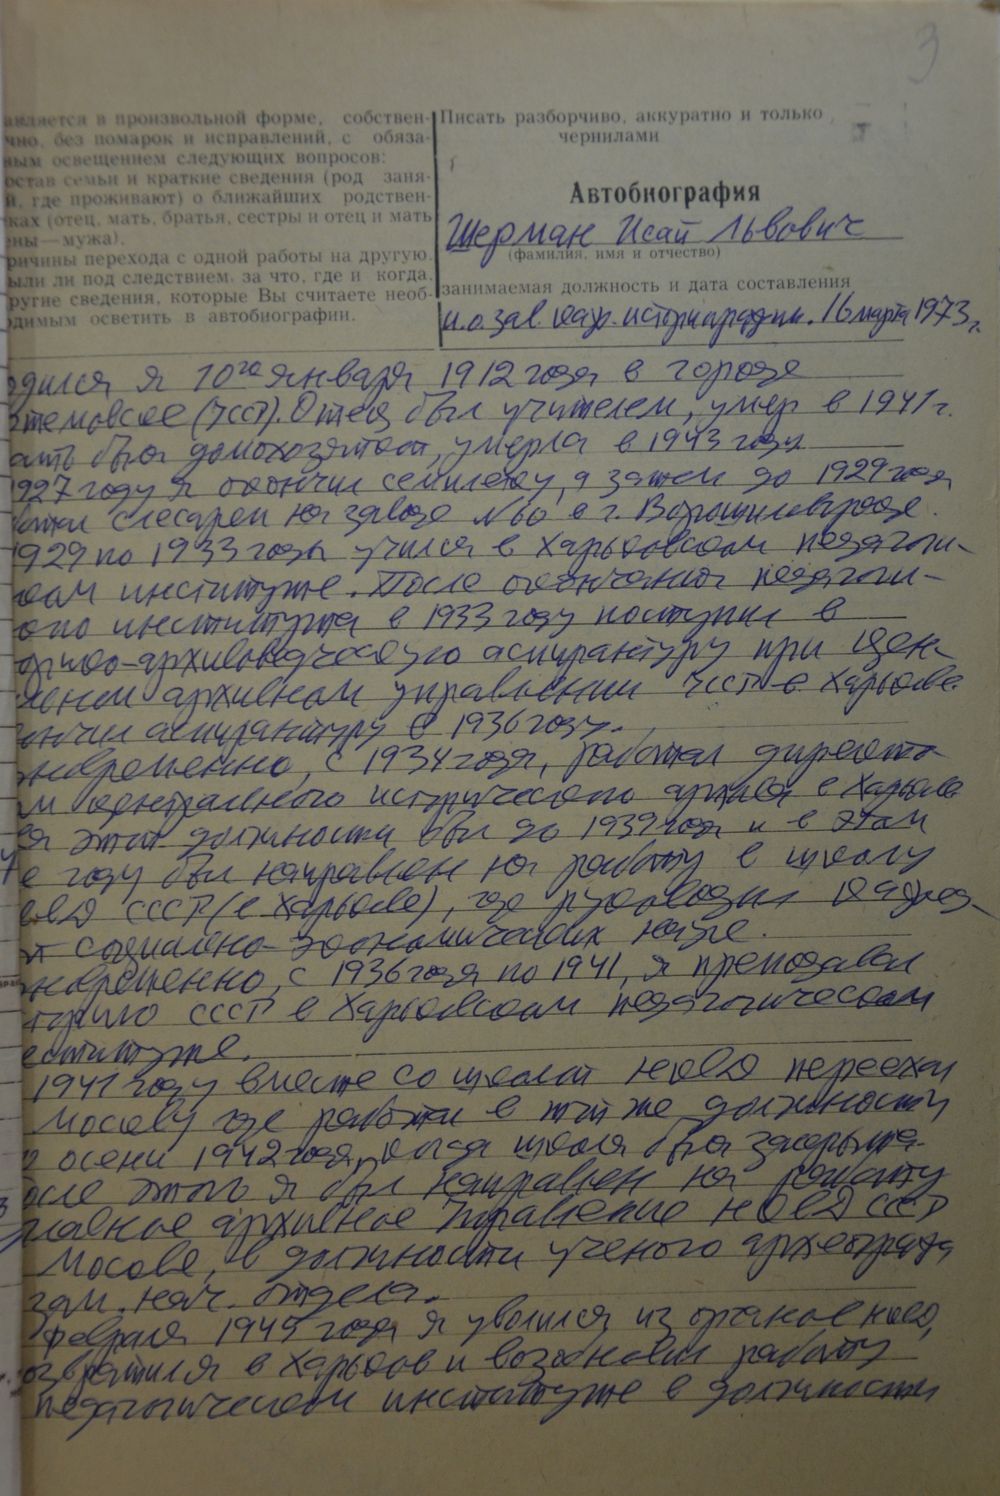 3
авляется в произвольной форме, собствен-
чно, без помарок и исправлений, с обяза-
ным освещением следующих вопросов:
остав семьи и краткие сведения (род заня-
й, где проживают) о ближайших родствен-
ках (отец, мать, братья, сестры и отец и мать
ены — мужа).
ричины перехода с одной работы на другую.
ыли ли под следствием, за что, где и когда.
ругие сведения, которые Вы считаете необ-
одимым осветить в автобиографии.
Писать разборчиво, аккуратно и только
чернилами
Автобиография
Шерман Исай Львович
(фамилия, имя и отчество)
занимаемая должность и дата составления
и.о зав. каф. историографии. 16 марта 1973 г.
одился я 10го января 1912 года в городе
ртемовске (УССР). Отец был учителем, умер в 1941 г.
ать была домохозяйкой, умерла в 1943 году
1927 году я окончил семилетку, а затем до 1929 года
ботал слесарем на заводе №60 в г. Ворошиловграде.
1929 по 1933 годы учился в Харьковском педагоги-
ском институте. После окончания педагоги-
ого института в 1933 году поступил в
орико-архивоведческую аспирантуру при Цен-
льном архивном управлении УССР в Харькове.
ончил аспирантуру в 1936 году.
новременно, с 1934 года, работал директо-
м центрального исторического архива в Харькове
на этой должности был до 1939 года и в этом
е году был направлен на работу в школу
НКВД СССР (в Харькове), где руководил кафед-
й социально-экономических наук.
новременно, с 1936 года по 1941, я преподавал
торию СССР в Харьковском педагогическом
ституте.
1941 году вместе со школой НКВД переехал
Москву где работал в той же должности
о осени 1942 года, когда школа была закрыта.
осле этого я был направлен на работу
Главное архивное Управление НКВД СССР
Москве, в должности ученого археографа
зам. нач. отдела.
феврале 1945 года я уволился из органов НКВД,
озвратился в Харьков и возобновил работу
педагогическом институте в должности